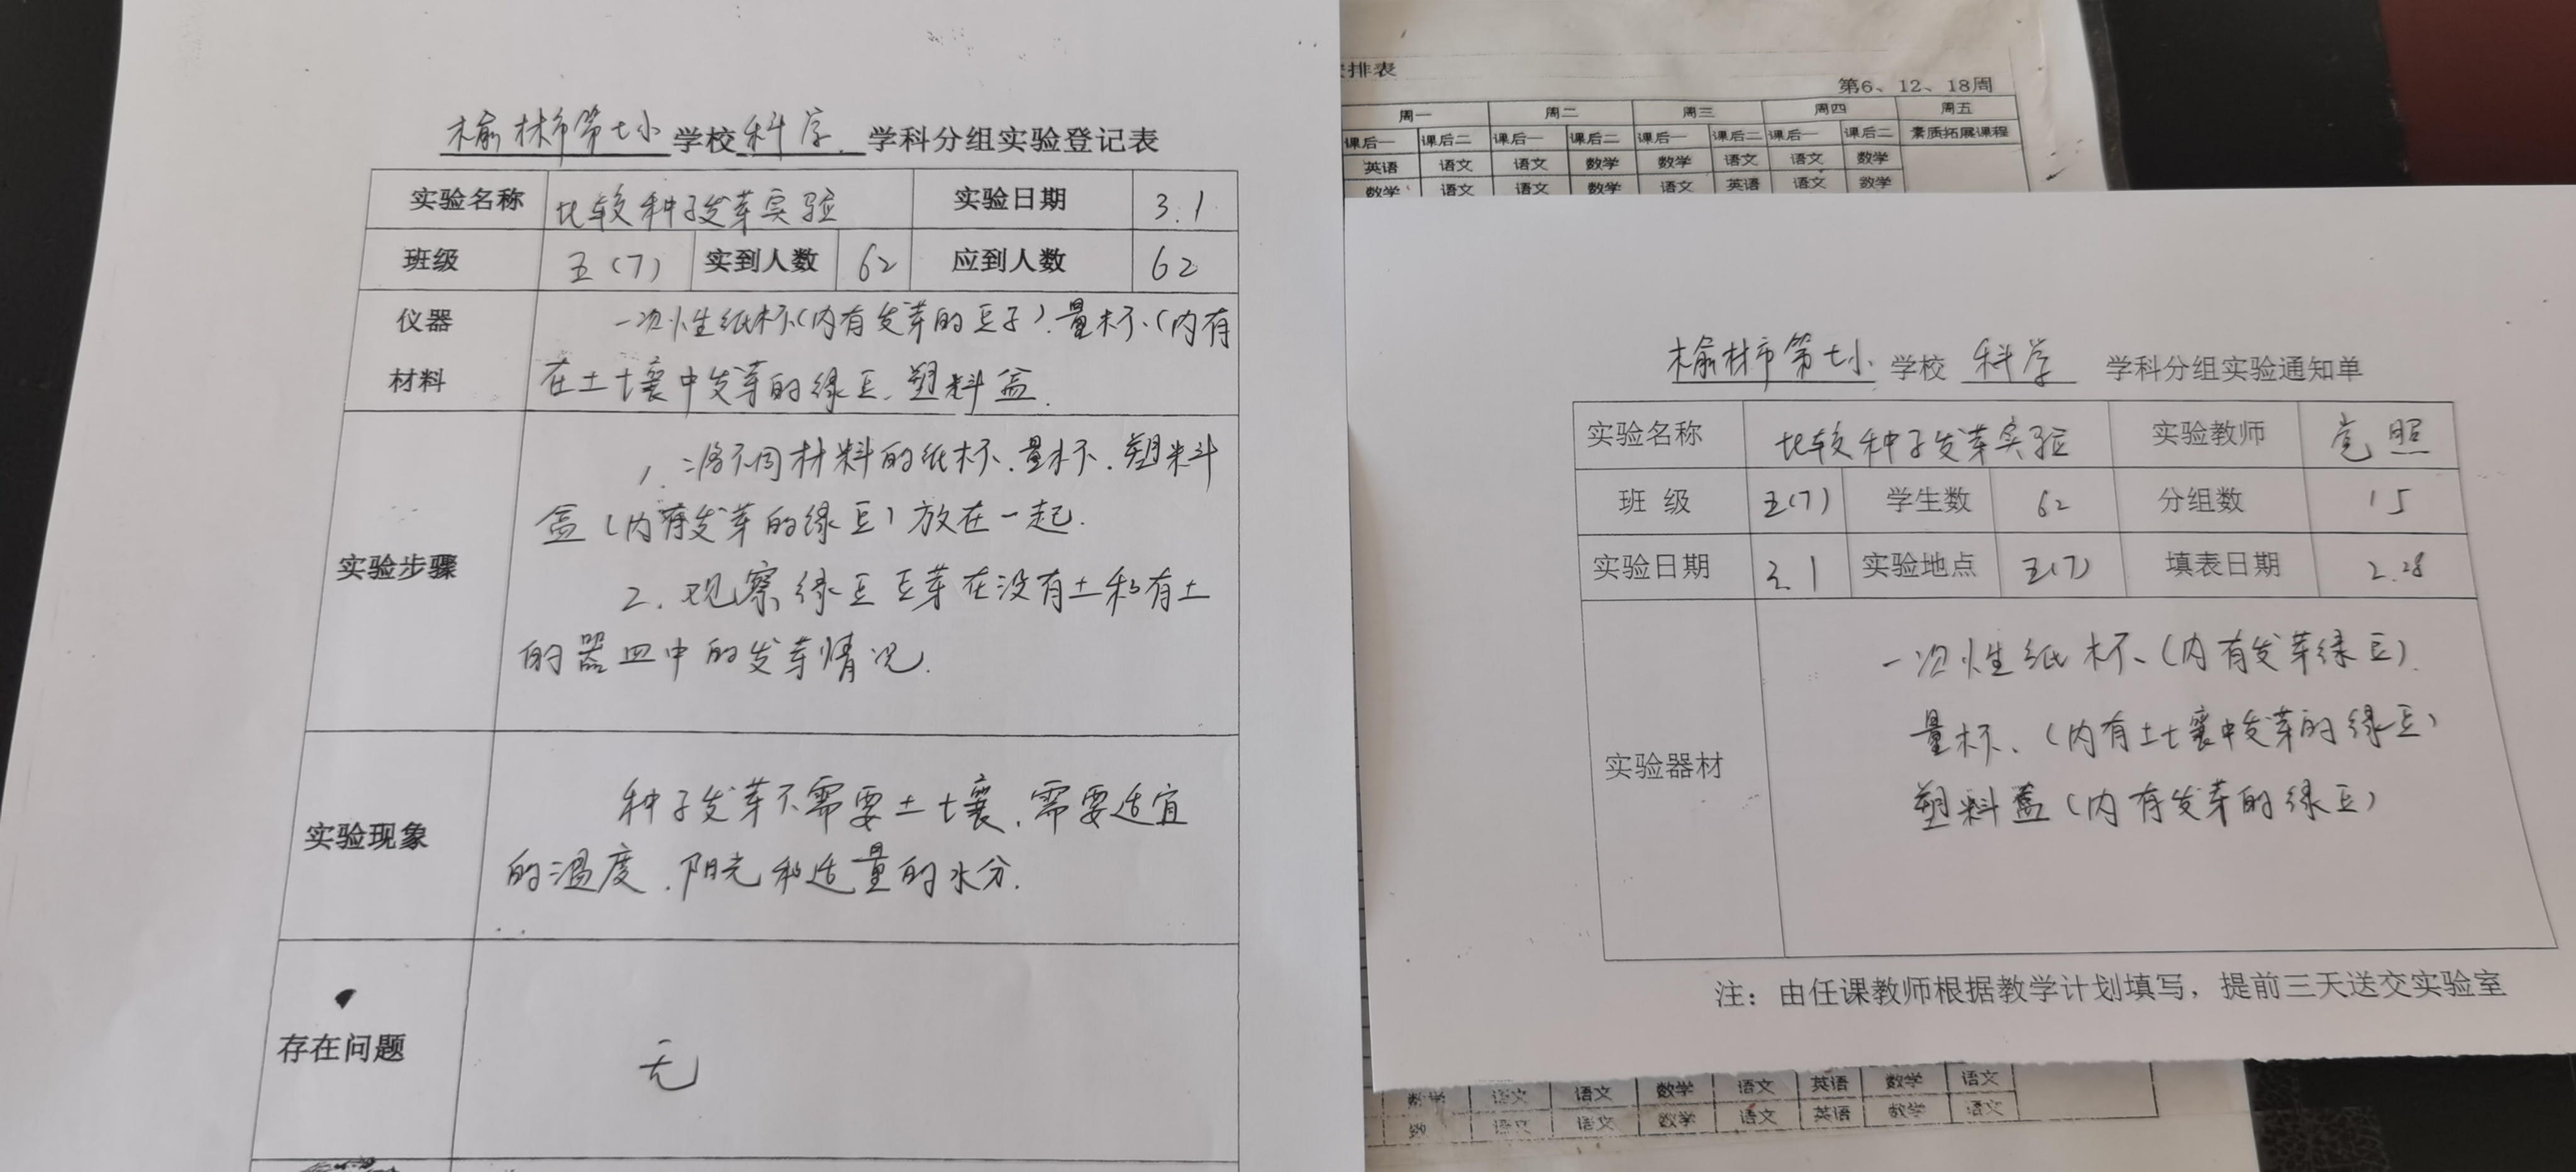 榆林市第七小学校科学学科分组实验登记表
实验名称 比较种子发芽实验 实验日期 3.1
班级 五(7) 实到人数 62 应到人数 62
仪器
材料
一次性纸杯(内有发芽的豆子).量杯.(内有
在土壤中发芽的绿豆.塑料盒.
实验步骤
1.将不同材料的纸杯.量杯.塑料
盒(内有发芽的绿豆)放在一起.
2.观察绿豆豆芽在没有土和有土
的器皿中的发芽情况.
实验现象
种子发芽不需要土壤.需要适宜
的温度.阳光和适量的水分.
存在问题
无
排表
第6、12、18周
周一 周二 周三 周四 周五
课后一 课后二 课后一 课后二 课后一 课后二 课后一 课后二 素质拓展课程
英语 语文 语文 数学 数学 语文 语文 数学
数学 语文 语文 数学 语文 英语 语文 数学
榆林市第七小学校 科学 学科分组实验通知单
实验名称 比较种子发芽实验 实验教师 照
班级 五(7) 学生数 62 分组数 15
实验日期 3.1 实验地点 五(7) 填表日期 2.28
实验器材
一次性纸杯、(内有发芽绿豆).
量杯、(内有土壤中发芽的绿豆)
塑料盒(内有发芽的绿豆)
注：由任课教师根据教学计划填写，提前三天送交实验室
数学 语文 语文 数学 语文 英语 数学 语文
数 语文 语文 数学 语文 英语 数学 语文